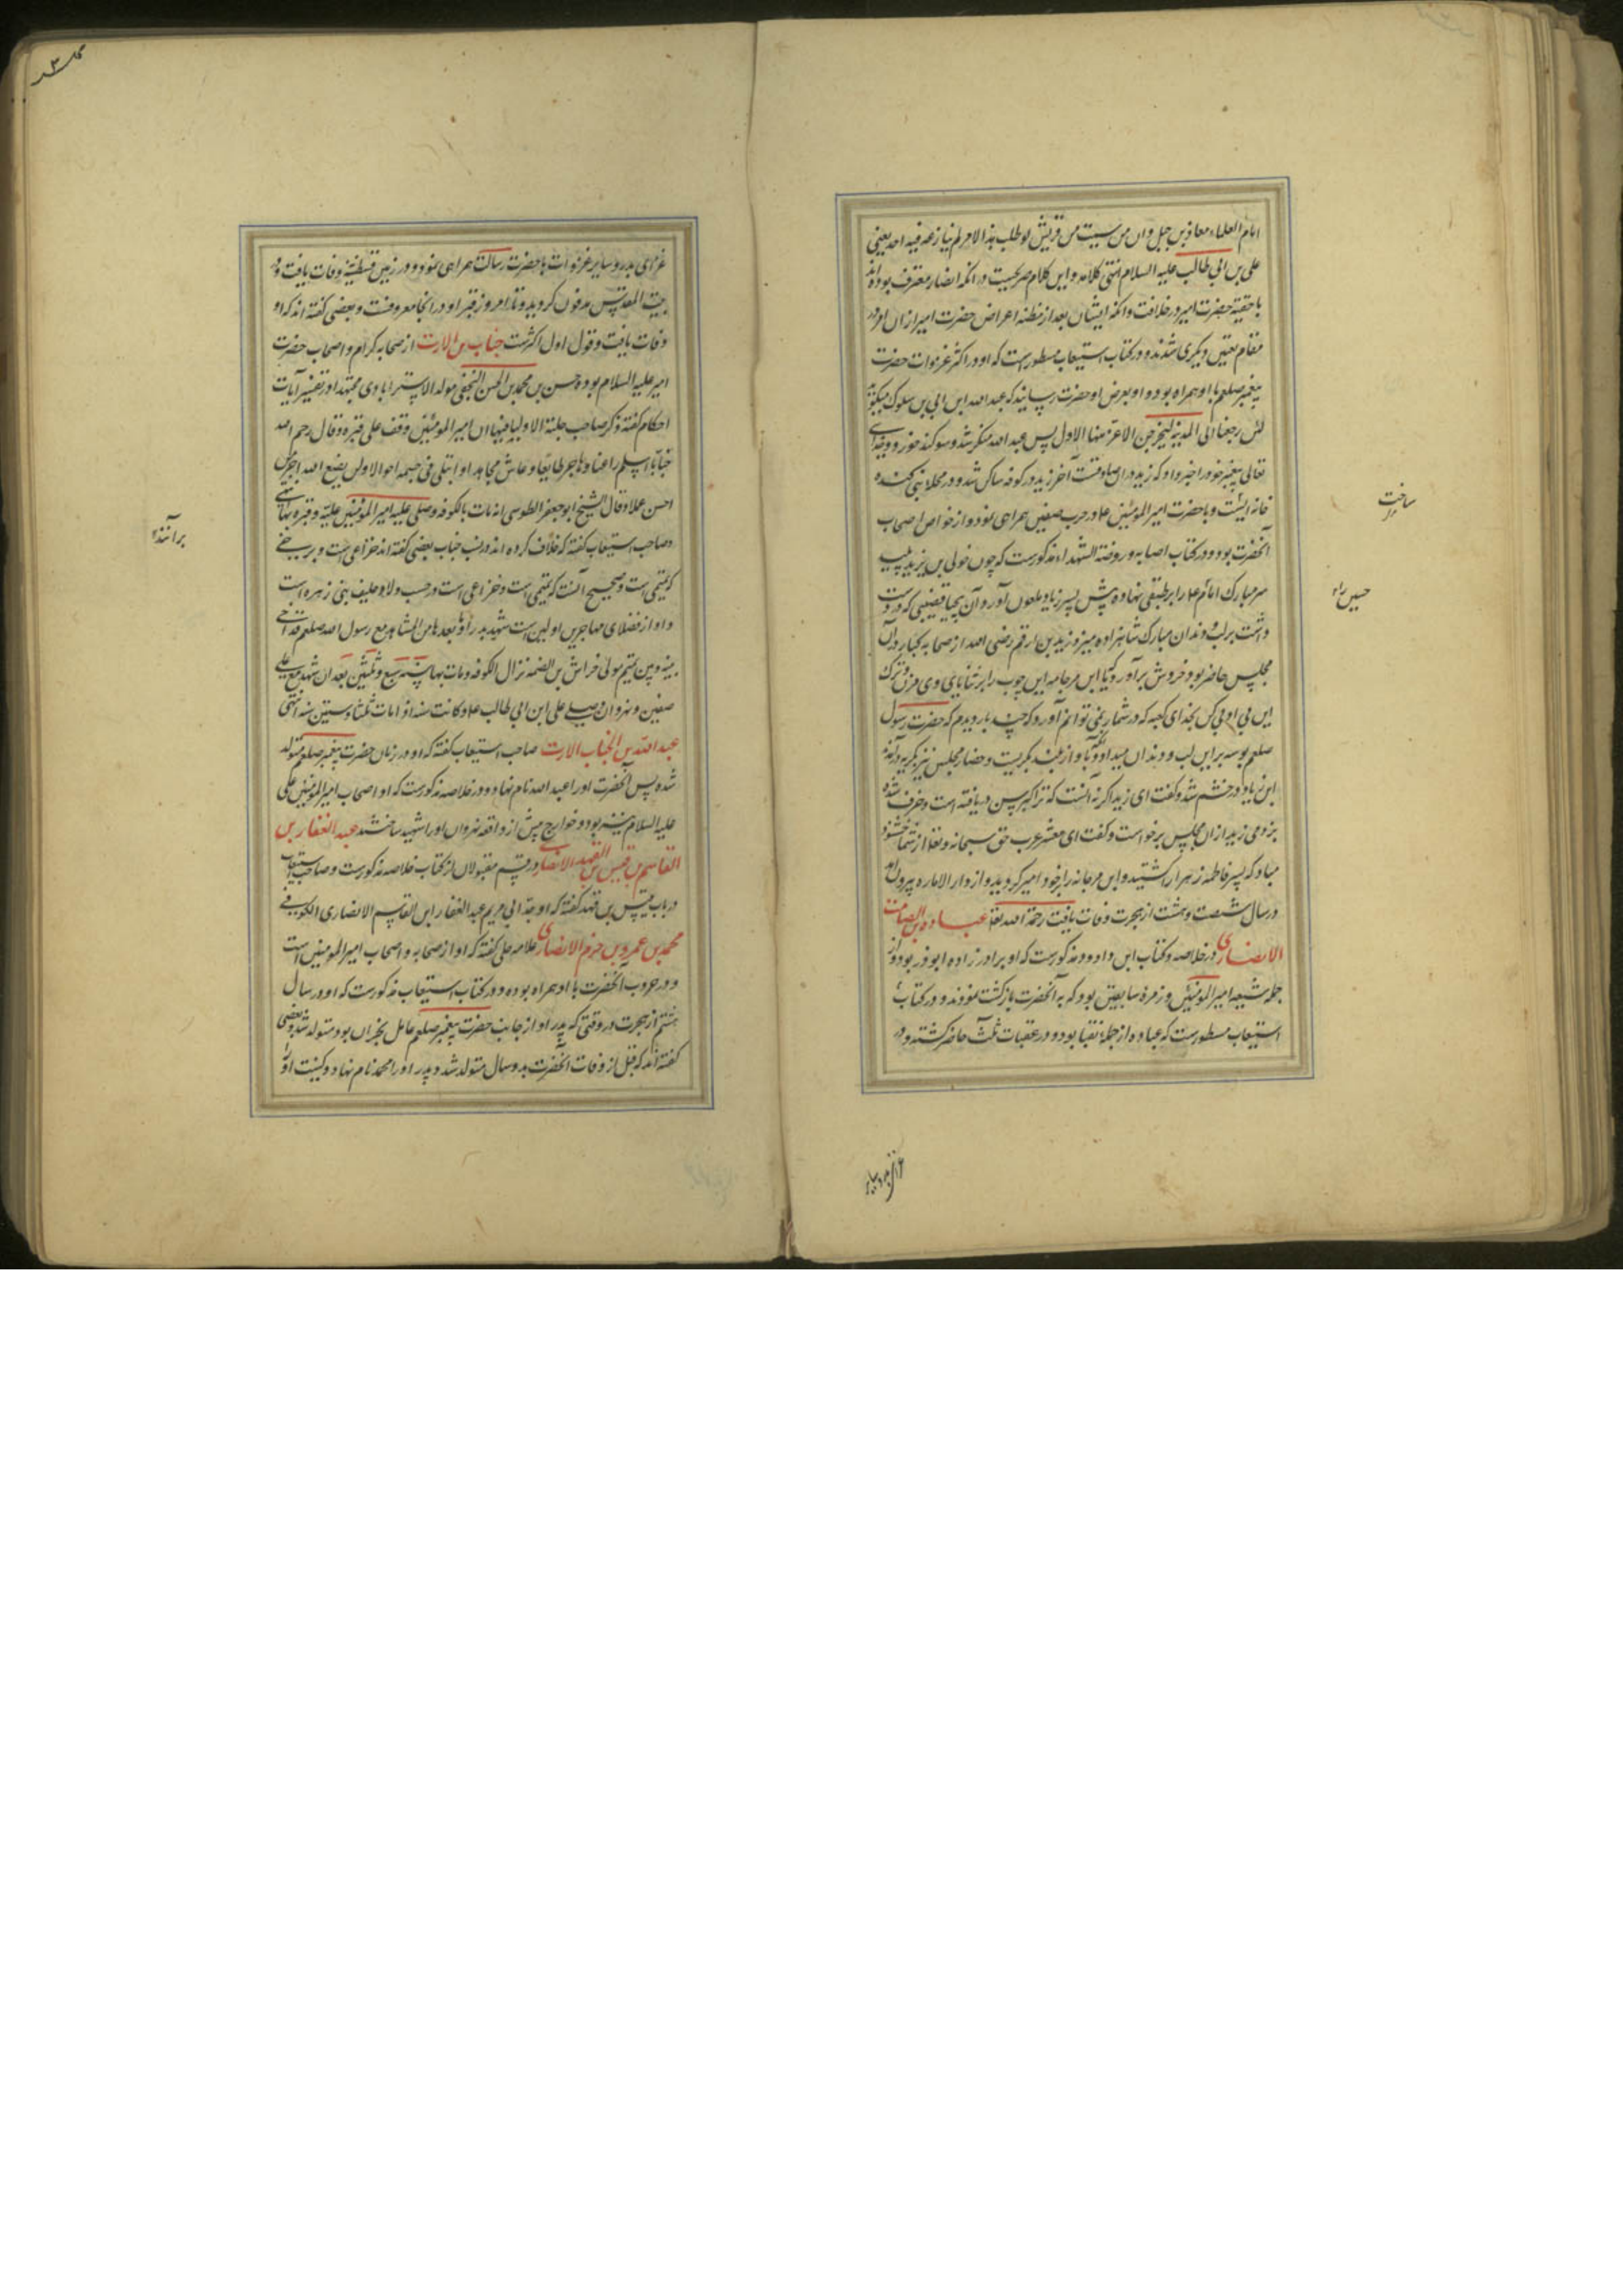 امام العلماء معاذ بن جبل وان من سمیت من قریش لو طلب هذا الامر لم ینازعه فیه احد یعنی
علی بن ابی طالب علیه السلام انتهی کلامه و این کلام صریحیست در انکه انصار معترف بوده اند
با حقیة حضرت امیر در خلافت و انکه ایشان بعد از مظنه اعراض حضرت امیر ازان امر در
مقام تعیین دیگری شدند و در کتاب استیعاب مسطورست که او در اکثر غزوات حضرت
پیغمبر صلعم با او همراه بوده و او بعرض او حضرت رسانید که عبد الله ابن ابی بن سلول میکوید
لئن رجعنا الی المدینة لیخرجن الاعز منها الاذل پس عبد الله منکر شد و سوکند خورد و خدای
تعالی پیغمبر خود را خبر داد که زید در ان صادقست آخر زید در کوفه ساکن شد و در محله بنی کنده
خانه ایست و با حضرت امیر المؤمنین ع در حرب صفین همراهی نمود و از خواص اصحاب
آنحضرت بود و در کتاب اصابه و روضة الشهداء مذکورست که چون خولی بن یزید پلید
سر مبارک امام ع را بر طبقی نهاده پیش پسر زیاد ملعون آورد و آن بیحیا قضیبی که در دست
داشت بر لب و دندان مبارک شاهزاده میزد زید بن ارقم رضی الله از صحابه کبار در آن
مجلس حاضر بود خروش برآورد که یا ابن مرجانه این چوب را بر ثنایای وی مزن و ترک
این بی ادبی کن بخدای کعبه که در شمار نمی توانم آورد که چند بار دیدم که حضرت رسول
صلعم بوسه بر این لب و دندان میداد و بآواز بلند بگریست و حضار مجلس نیز بگریه درآمدند
ابن زیاد در خشم شد و گفت ای زید اگر نه آنست که ترا کبر سن دریافته است و خرف شده
بزدمی زید ازان مجلس برخواست و گفت ای معشر عرب حق سبحانه و تعالی از شما خشنود
مباد که پسر فاطمه زهرا را کشتید و ابن مرجانه را بر خود امیر کردید و از دار الاماره بیرون آمد
در سال شصت و هشت از هجرت وفات یافت رحمة الله تعالی عباده بن الصامت
الانصاری در خلاصه و کتاب ابن داود مذکورست که او برادر زاده ابو ذر بود و از
جمله شیعه امیر المؤمنین و زمره سابقین بود که به آنحضرت بازگشت نمودند و در کتاب
استیعاب مسطورست که عباده از جمله نقبا بود و در عقبات ثلث حاضر کشته و در
ساخت
حسین را
غزای بدر و سایر غزوات با حضرت رسالت همراهی نمود و در زمین قسطنطینیة وفات یافت و در
بیت المقدس مدفون کردید و تا امروز قبر او در انجا معروفست و بعضی گفته اند که او
وفات یافت و قول اول اکثرست خباب بن الارت از صحابه کرام و اصحاب حضرت
امیر علیه السلام بوده حسن بن محمد بن الحسن النجفی مولد الاستر ابادی محتدا در تفسیر آیات
احکام گفته ذکر صاحب حلیة الاولیا فیها ان امیر المؤمنین وقف علی قبره و قال رحم الله
خبابا اسلم راغبا و هاجر طایعا و عاش مجاهدا و ابتلی فی جسمه احوالا و لن یضیع الله اجر من
احسن عملا و قال الشیخ ابو جعفر الطوسی انه مات بالکوفه و صلی علیه امیر المؤمنین علیه و قبره بها انتهی
و صاحب استیعاب گفته که خلاف کرده اند در نسب خباب بعضی گفته اند خزاعی است و برخی
که تمیمی است و صحیح آنست که تمیمی است و خزاعی است در حسب ولا و حلیف بنی زهره است
و او از فضلای مهاجرین اولین است شهد بدرا و ما بعدها من المشاهد مع رسول الله صلعم قد آخی
بینه و بین تمیم مولی خراش بن الصمه نزال الکوفه و مات بها سنه سبع و ثلثین بعد ان شهد مع علی
صفین و نهروان و صلی علی ابن ابی طالب ع و کانت سنه اذ مات ثلثا و ستین سنه انتهی
عبد الله بن الخباب الارت صاحب استیعاب گفته که او در زمان حضرت پیغمبر صلعم متولد
شده پس آنحضرت او را عبد الله نام نهاد و در خلاصه مذکورست که او اصحاب امیر المؤمنین علی
علیه السلام نیز بود و خوارج پیش از واقعه نهروان او را شهید ساختند عبد الغفار بن
القاسم بن قیس بن القهد الانصاری در قسم مقبولان از کتاب خلاصه مذکورست و صاحب استیعاب
در باب قیس بن قهد گفته که او جد ابی مریم عبد الغفار ابن القاسم الانصاری الکوفی
محمد بن عمرو بن حزم الانصاری علامه حلی گفته که او از صحابه و اصحاب امیر المؤمنین است
و در حروب آنحضرت با او همراه بوده و در کتاب استیعاب مذکورست که او در سال
هشتم از هجرت در وقتی که پدر او از جانب حضرت پیغمبر صلعم عامل نجران بود متولد شد و بعضی
گفته اند که قبل از وفات آنحضرت بدو سال متولد شد و پدر او را محمد نام نهاد و کنیت او
برانند